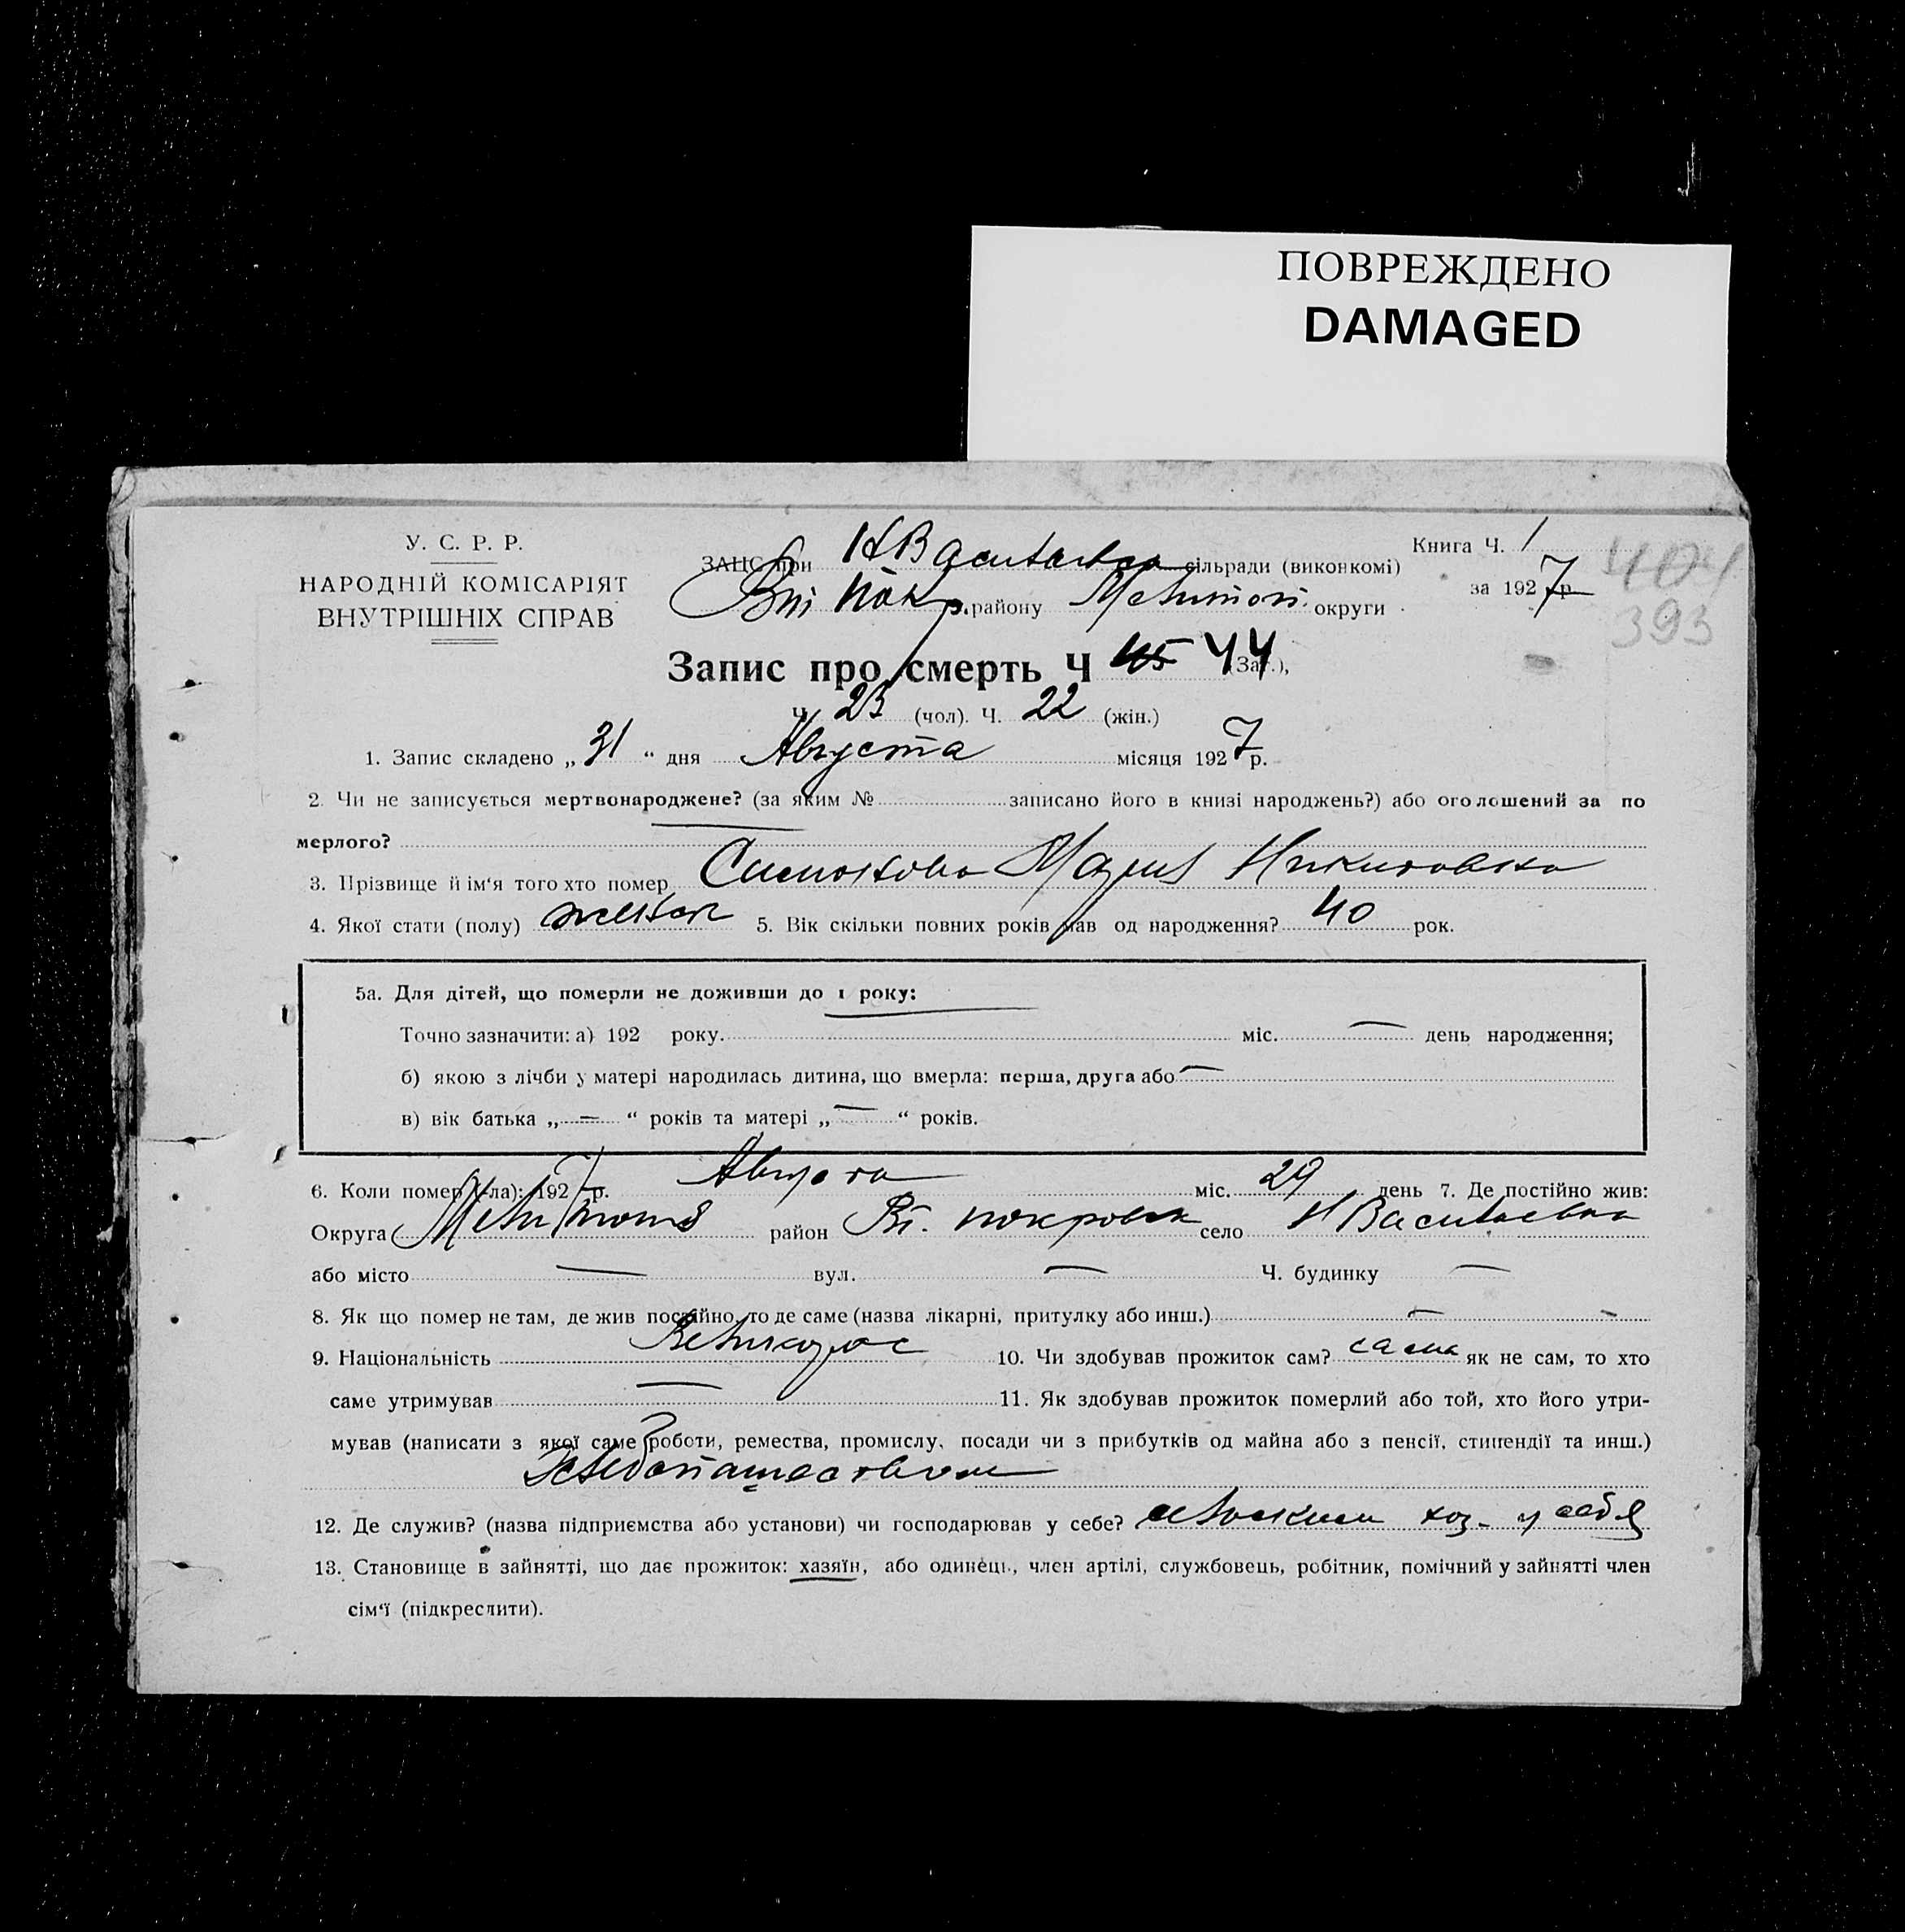 ПОВРЕЖДЕНО
DAMAGED
У. С. Р. Р.
НАРОДНІЙ КОМІСАРІЯТ
ВНУТРІШНІХ СПРАВ
ЗАЦС при Н Васильевка сільради (виконкомі)
району Мелитоп. округи
Книга Ч. 1
за 1927 р.
404
393
Запис про смерть Ч 45 44 (Заг.),
Ч. 23 (чол). Ч. 22 (жін.)
1. Запис складено „ 31 “ дня Августа місяця 1927 р.
2. Чи не записується мертвонароджене? (за яким № записано його в книзі народжень?) або оголошений за по
мерлого?
3. Прізвище й ім‘я того хто помер Симонова Мария Никитовна
4. Якої стати (полу) женск 5. Вік скільки повних років мав од народження? 40 рок.
5а. Для дітей, що померли не доживши до 1 року:
Точно зазначити: а) 192 року. міс. — день народження;
б) якою з лічби у матері народилась дитина, що вмерла: перша, друга або —
в) вік батька „ — “ років та матері „ — “ років.
6. Коли помер (-ла): 1927 р. Августа міс. 29 день 7. Де постійно жив:
Округа Мелитопол район Вт. покровск село Н Васильевка
або місто — вул. — Ч. будинку —
8. Як що помер не там, де жив постійно, то де саме (назва лікарні, притулку або инш.) — —
9. Національність Великорос 10. Чи здобував прожиток сам? сама як не сам, то хто
саме утримував — 11. Як здобував прожиток померлий або той, хто його утри-
мував (написати з якої саме роботи, ремества, промислу, посади чи з прибутків од майна або з пенсії, стипендії та инш.)
Хлебопашеством
12. Де служив? (назва підприємства або установи) чи господарював у себе? сельским хоз- у себя
13. Становище в зайнятті, що дає прожиток: хазяїн, або одинець, член артілі, службовець, робітник, помічний у зайнятті член
сім‘ї (підкреслити).